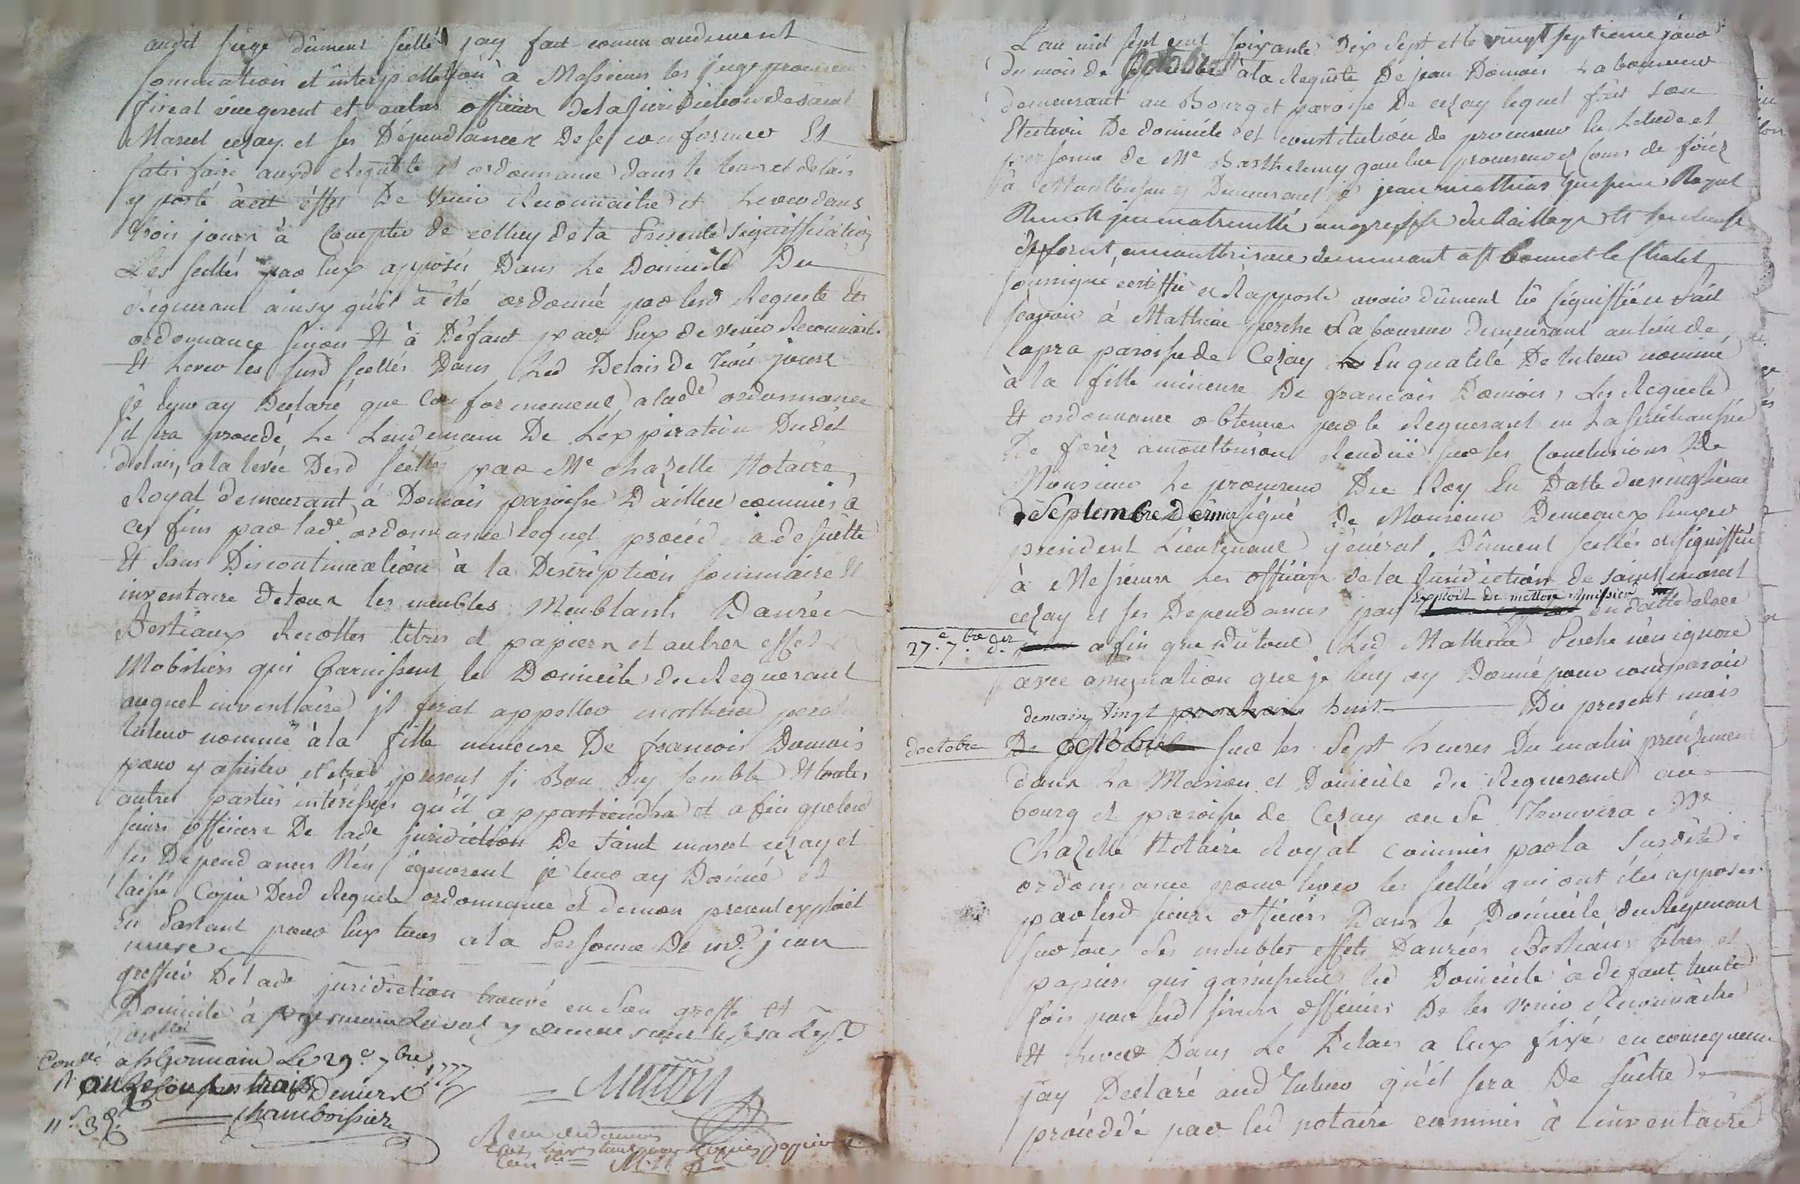 audit siege dûment scellé jay fait commandement
sommation et interpellation à Messieurs les juge procureur
fiscal vicegerent et autres officiers de la jurisdiction de saint
Marcel cezay et ses Dépendances De se conformer Et
satisfaire auxd Requête et ordonnance dans le tems et delais
y porté à cet effet De venir Reconnaitre et Lever dans
trois jours à Compter de celluy de la Presente signiffication
Les scellés par Eux apposés Dans Le Domicile Du
Requerant ainsy qu'il à été ordonné par lesd Requete Et
ordonnance sinon Et à Défaut par Eux de venir Reconnaitre
Et Lever les susd scellés Dans Led Delais de trois jours
je leur ay Declaré que Conformement a lade ordonnance
il sera procedé Le Lendemain De L'expiration Dudit
delais, a la levée Desd scellés par Me chazelle Notaire
Royal demeurant à Domois paroisse D'ailleu commis à
ces fins par lade ordonnance lequel procéd a de suitte
Et sans Discontinuation à la Description sommaire Et
inventaire de tous les meubles Meublants Danrées
Bestiaux Recoltes titres et papiers et autres effets
Mobiliers qui Garnissent le Domicile du Requerant
auquel inventaire il fera appeller mathieu perche
tuteur nommé à la fille mineure De francois Damois
pour y assister et etre present si Bon luy semble Et toutes
autres parties interessées qu'il appartiendra et a fin que lesd
sieurs officiers De lade juridiction De saint marcel cezay et
ses Dependances N'en ignorent je leur ay Donné et
laissé Copie Desd Requete ordonnance et de mon present exploit
En Parlant pour Eux tous a la Personne De Me jean
greffier De lade juridiction trouvé en son greffe et
Domicile à st germain Laval y demeurant
Conle a st Germain Le 29e 7bre 1777
R onze sous trois Deniers
11s 3d
chamboissier
Metton
L'an mil sept cent soixante Dix sept et le vingt septieme jour
du mois de octobre à la Requête De jean Damois Laboureur
demeurant au Bourg et paroisse De cezay lequel fait son
Election De domicile et constitution de procureur En Letude et
personne de Me Barthelemy procureur es Cours de forez
à Montbrison y Demeurant je jean mathias Royal
immatriculé au greffe du Baillage Et senechaussée
de forest, a montbrison, demeurant a st bonnet le
soussigné certiffie et Rapporte avoir dûment lû signiffié et Fait
sçavoir à Mathieu perche Laboureur demeurant au lieu de
lapra paroisse de Cezay En qualité De tuteur nommé
à la fille mineure De francois Damois, Les Requete
Et ordonnance obtenues par le Requerant en La Sénéchaussée
De forèz a montbrison Rendüe sur les Conclusions De
Monsieur Le procureur Du Roy En Datte du vingtieme
Septembre Dernier signé de Monsieur
president Lieutenant général. Dûment scellés et signiffiée
à Messieurs Les officiers de la Juridiction de saint marcel
cezay et ses Dependances par Exploit de metton huissier en datte du
27e 7bre der afin que Du tout Led Mathieu Perche n'en ignore
avec assignation que je luy ay Donné pour comparoir
demain Vingt huit Du present mois
d'octobre sur les Sept heures Du matin précizement
dans La Maison et Domicile du Requerant au
bourg et paroisse de Cezay ou Se Trouvera Me
Chazelle Notaire Royal commis par la Susdite
ordonnance pour lever les scellés qui ont étés apposés
par lesd sieurs officiers Dans le Domicile du Requerant
sur tous Les meubles effets Danrées Bestiaux titres et
papiers qui garnissent led Domicile à defaut toute
fois par lesd sieurs officiers De les venir Reconnaitre
Et Lever Dans Le Delais a Eux fixés en consequence
jay Declaré aud Tuteur qu'il sera De suitte
procéddé par led notaire commis à L'inventaire